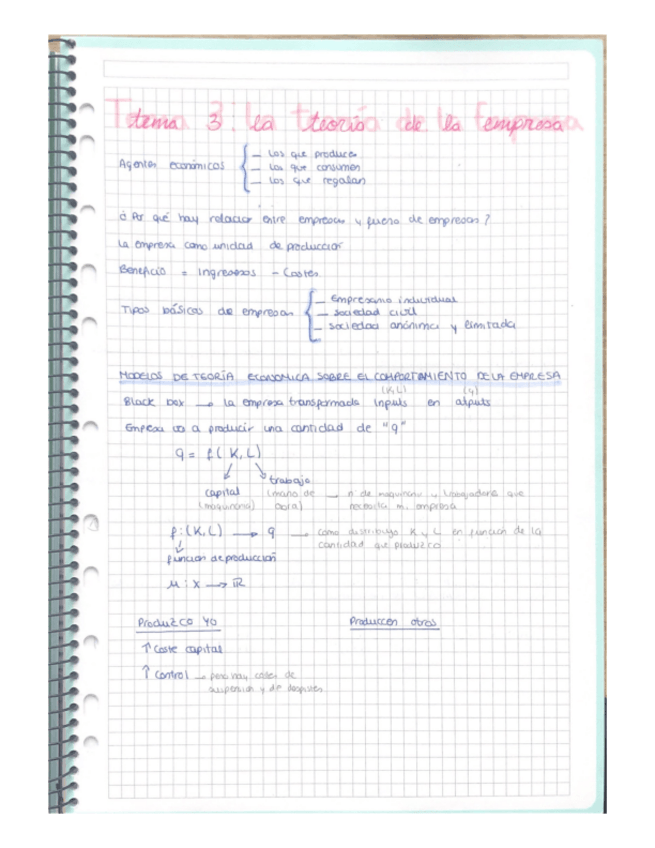 tema 3: La teoría de la empresa
Agentes económicos
– Los que producen
– Los que consumen
– Los que regalan
¿ Por qué hay relación entre empresas y fuera de empresas ?
La empresa como unidad de producción
Beneficio = Ingresos - Costes
Tipos básicos de empresas
– Empresario individual
– Sociedad civil
– sociedad anónima y limitada
MODELOS DE TEORÍA ECONOMICA SOBRE EL COMPORTAMIENTO DE LA EMPRESA
(K,L) (q)
Black box → la empresa transformada inputs en outputs
Empresa va a producir una cantidad de "q"
q = f( K, L)
capital
(maquinaria)
trabajo
(mano de obra)
→ nº de maquinaria y trabajadores que
necesita mi empresa
f: (K,L) → q → como distribuyo K y L en función de la
cantidad que produzco
función de producción
μ : x → ℝ
Produzco yo
Producen otros
↑ Coste capital
↑ Control → pero hay costes de
supervision y de despistes